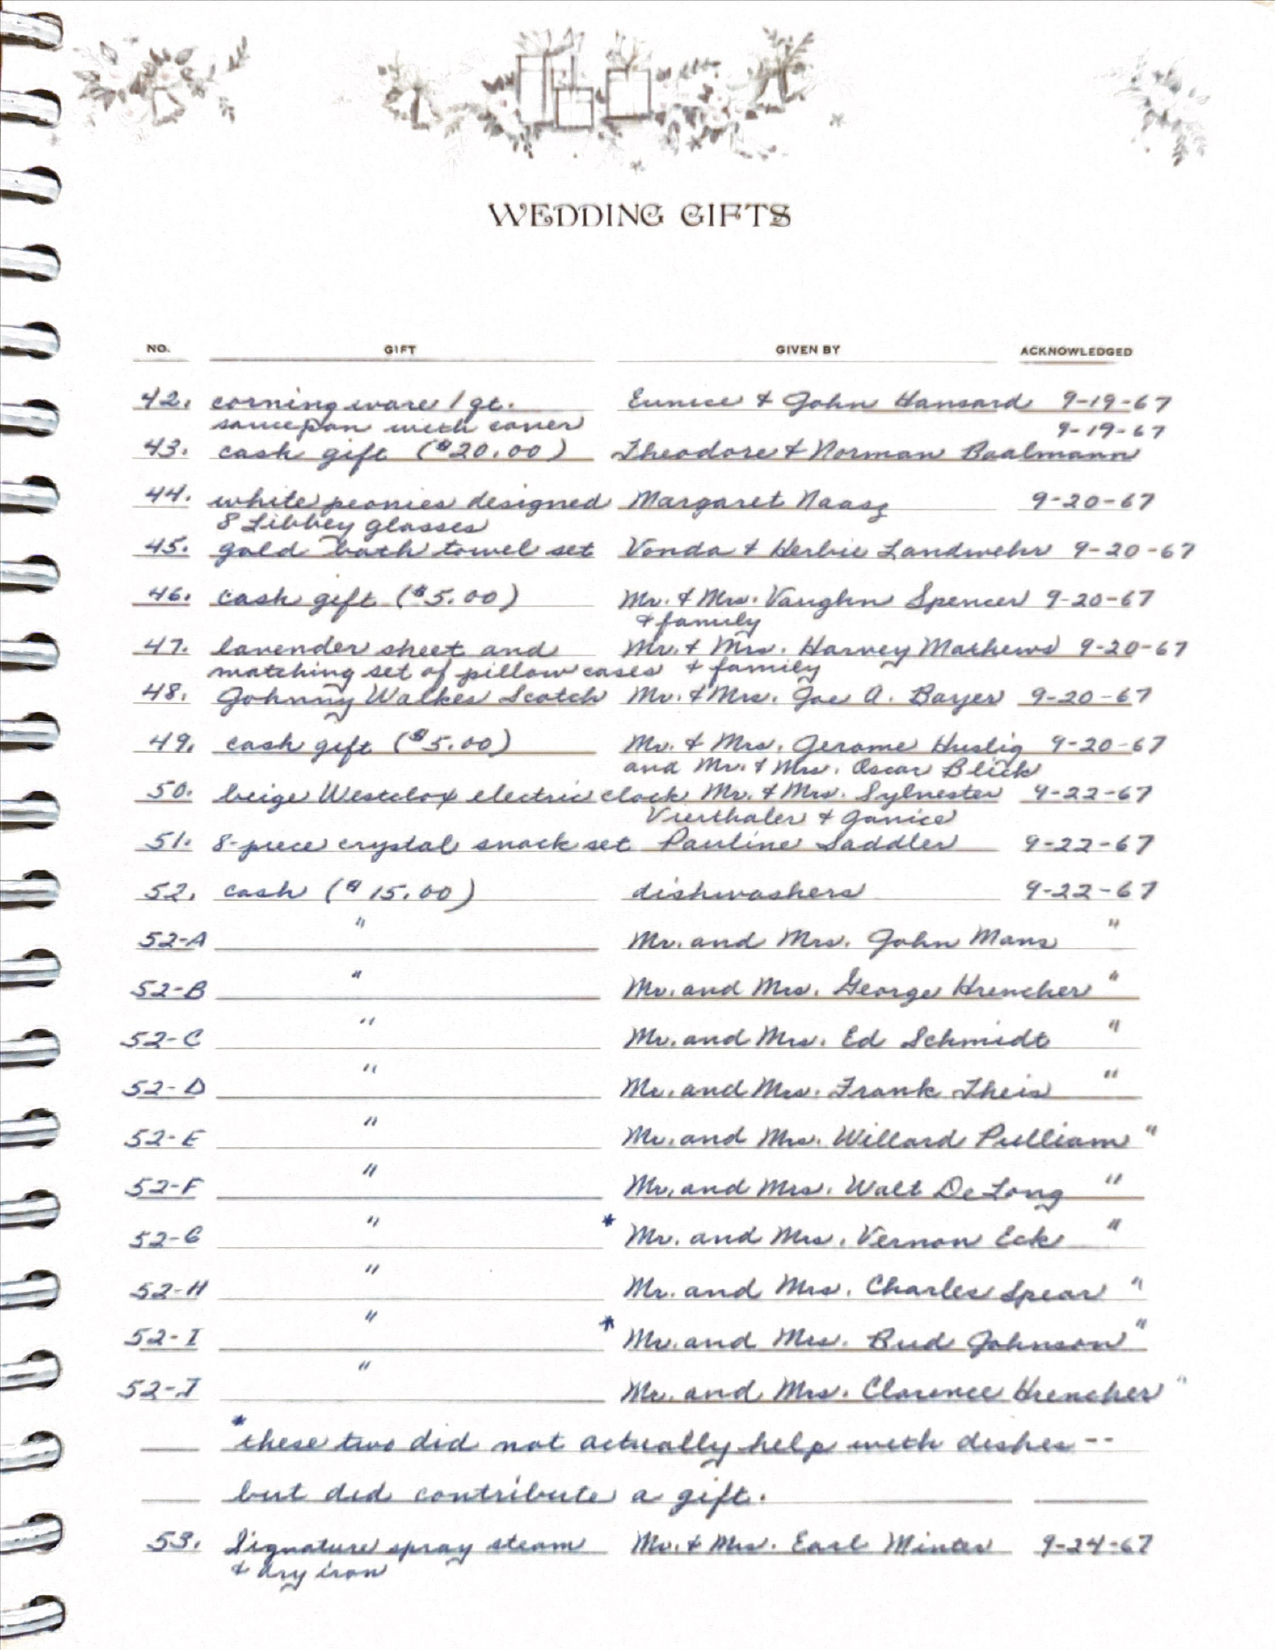 WEDDING GIFTS
NO. GIFT GIVEN BY ACKNOWLEDGED
42. corningware 1 qt. Eunice & John Hansard 9-19-67
saucepan with cover 9-19-67
43. cash gift ($20.00) Theodore & Norman Baalmann
44. white peonies designed Margaret Naasz 9-20-67
8 Libbey glasses
45. gold bath towel set Vonda & Herbie Landwehr 9-20-67
46. cash gift ($5.00) Mr. & Mrs. Vaughn Spencer 9-20-67
& family
47. lavender sheet and Mr. & Mrs. Harvey Mathews 9-20-67
matching set of pillow cases & family
48. Johnny Walker Scotch Mr. & Mrs. Joe A. Bayer 9-20-67
49. cash gift ($5.00) Mr. & Mrs. Jerome Hustig 9-20-67
and Mr. & Mrs. Oscar Blick
50. beige Westclox electric clock Mr. & Mrs. Sylvester 9-22-67
Vierthaler & Janice
51. 8-piece crystal snack set Pauline Saddler 9-22-67
52. cash ($15.00) dishwashers 9-22-67
52-A " Mr. and Mrs. John Mans "
52-B " Mr. and Mrs. George Hrencher "
52-C " Mr. and Mrs. Ed Schmidt "
52-D " Mr. and Mrs. Frank Theis "
52-E " Mr. and Mrs. Willard Pulliam "
52-F " Mr. and Mrs. Walt DeLong "
52-G " * Mr. and Mrs. Vernon Eck "
52-H " Mr. and Mrs. Charles Spear "
52-I " * Mr. and Mrs. Bud Johnson "
52-J " Mr. and Mrs. Clarence Hrencher "
*these two did not actually help with dishes --
but did contribute a gift.
53. Signature spray steam Mr. & Mrs. Earl Minter 9-24-67
& dry iron